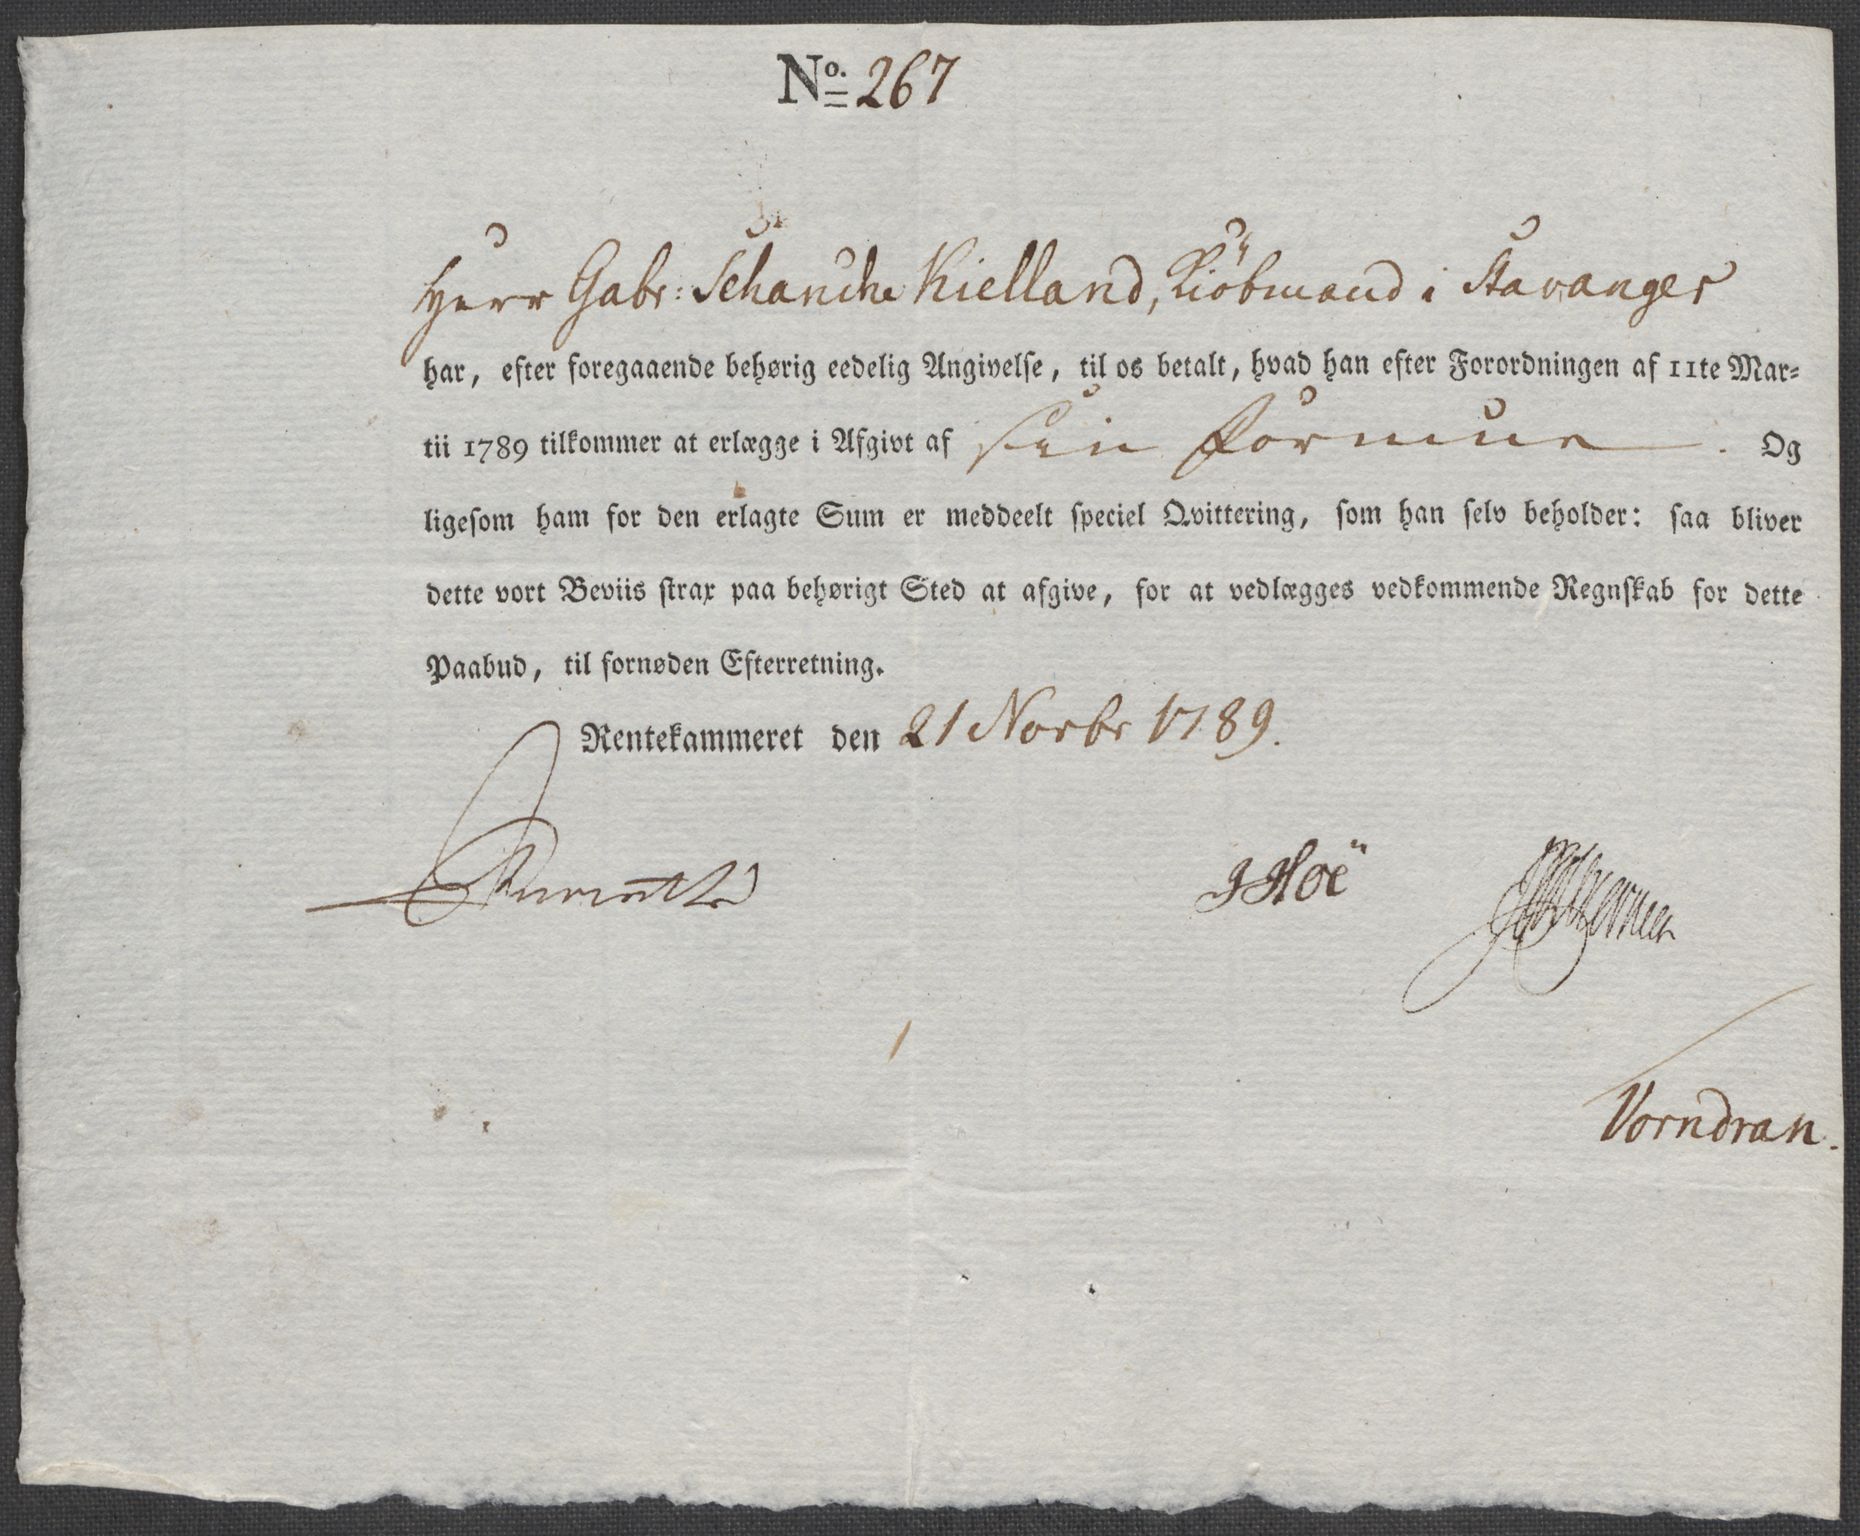 No. 267
Herr Gabr: Schanche Kielland, Kiöbmand i Stavanger
har, efter foregaaende behørig eedelig Angivelse, til os betalt, hvad han efter Forordningen af 11te Mar-
tii 1789 tilkommer at erlægge i Afgivt af sin Formue. Og
ligesom ham for den erlagte Sum er meddeelt speciel Qvittering, som han selv beholder: saa bliver
dette vort Beviis strax paa behørigt Sted at afgive, for at vedlægges vedkommende Regnskab for dette
Paabud, til fornøden Efterretning.
Rentekammeret den 21 Novbr 1789.
J Hoë
Vorndran.